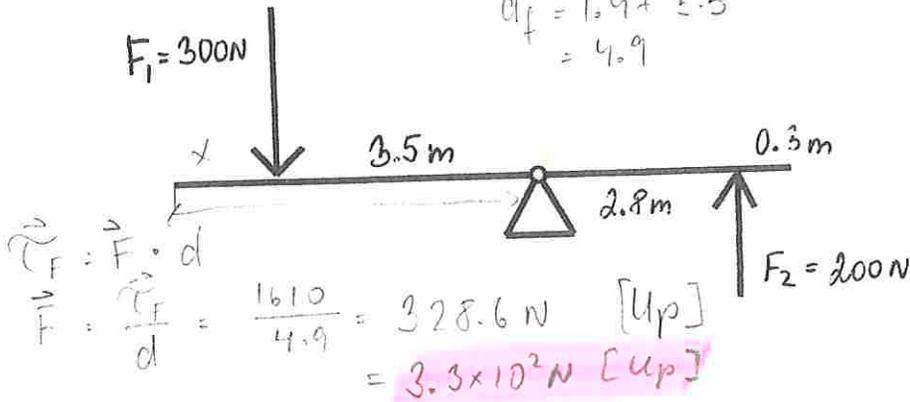 F₁ = 300N
= 4.9
x 3.5m 0.3m
2.8m
F₂ = 200N
τ⃗_F = F⃗ · d
F⃗ = τ⃗_F / d = 1610 / 4.9 = 328.6 N [Up]
= 3.3×10² N [Up]